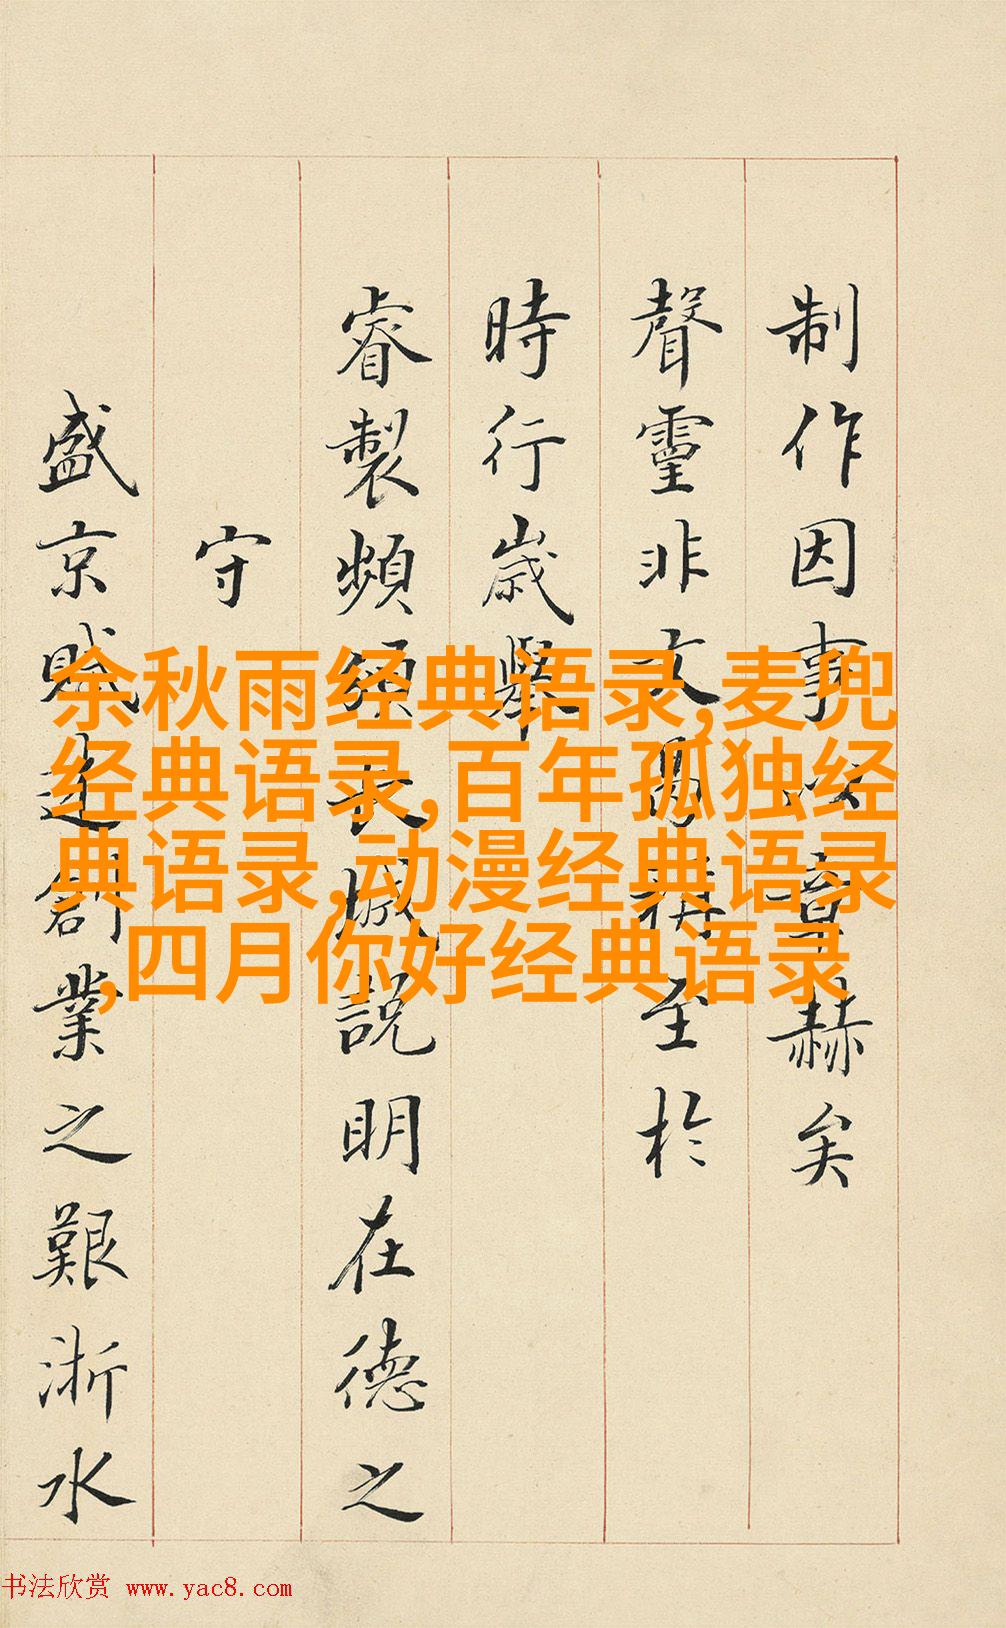 制作因事以章赫矣
聲靈非文曷稱至於
時行歲舉
睿製頻頒長城說明在德之
守
盛京賦述創業之艱浙水
余秋雨经典语录,麦兜
经典语录,百年孤独经
典语录,动漫经典语录
,四月你好经典语录
书法欣赏 www.yac8.com